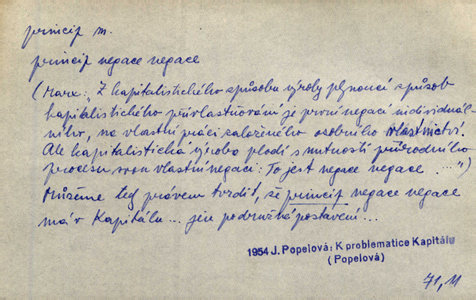 princip m.
princip negace negace
(Marx: „Z kapitalistického způsobu výroby plynoucí způsob
kapitalistického přivlastňování je první negací individuál-
ního, na vlastní práci založeného osobního vlastnictví.
Ale kapitalistická výroba plodí s nutností přírodního
procesu svou vlastní negaci. To jest negace negace ...")
Můžeme tedy právem tvrdit, že princip negace negace
má v Kapitálu... jen podružné postavení...
1954 J. Popelová: K problematice Kapitálu
(Popelová)
71, 11